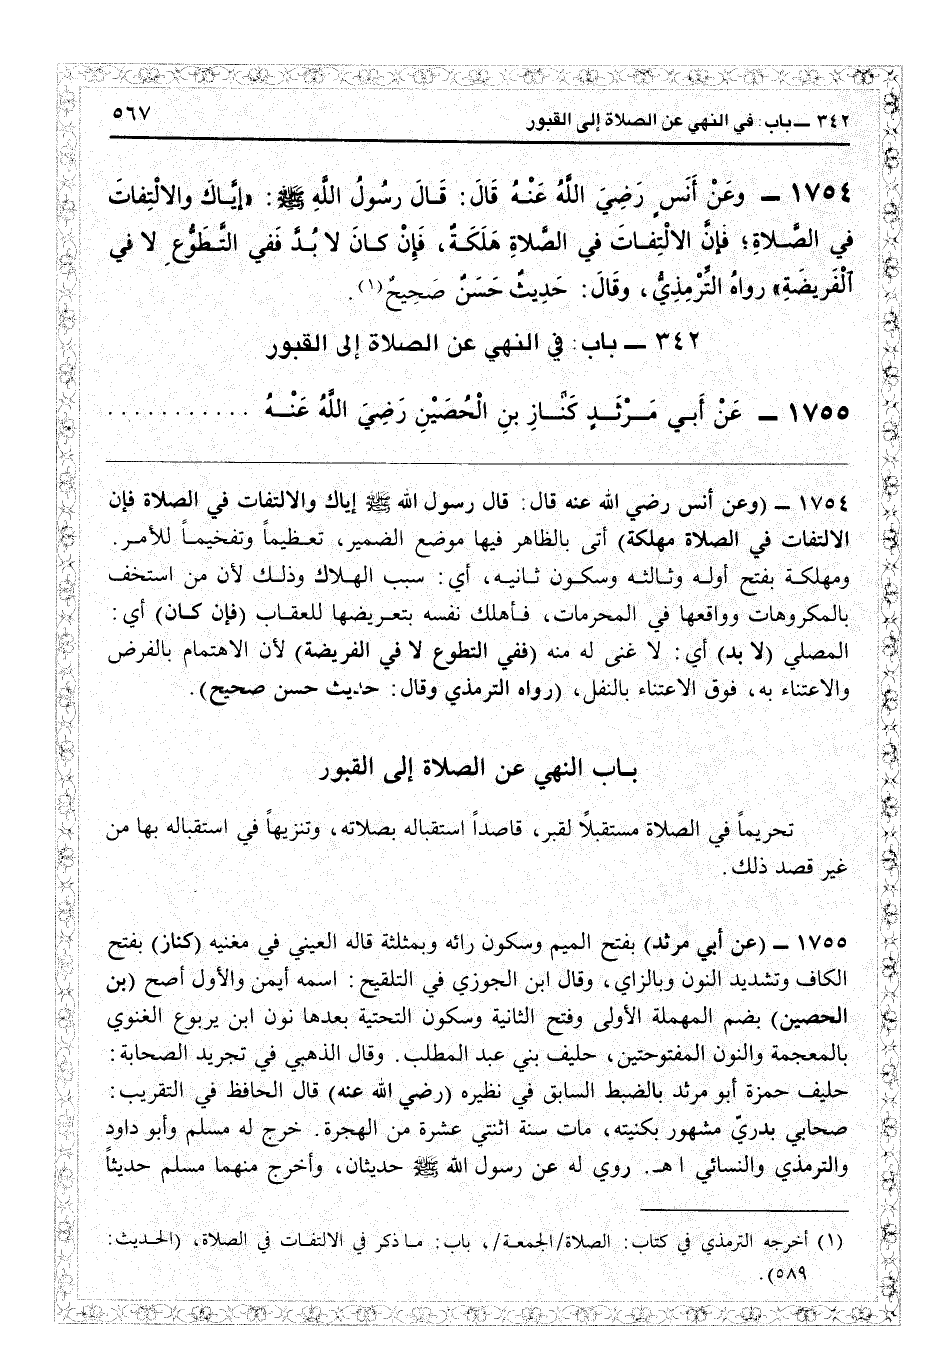 ٣٤٢ ــ باب: في النهي عن الصلاة إلى القبور
٥٦٧
١٧٥٤ ــ وعَنْ أَنَسٍ رَضِيَ اللَّهُ عَنْهُ قَالَ: قَالَ رسُولُ اللَّهِ ﷺ: «إِيَّاكَ والالْتِفاتَ
في الصَّلاةِ؛ فَإِنَّ الالْتِفاتَ في الصَّلاةِ هَلَكَةٌ، فَإِنْ كانَ لا بُدَّ فَفي التَّطَوُّعِ لا في
الْفَرِيضَةِ» رواهُ التِّرْمِذِيُّ، وقَالَ: حَدِيثٌ حَسَنٌ صَحِيحٌ(١).
٣٤٢ ــ باب: في النهي عن الصلاة إلى القبور
١٧٥٥ ــ عَنْ أَبي مَرْثَدٍ كَنَّازِ بنِ الْحُصَيْنِ رَضِيَ اللَّهُ عَنْهُ ...........
١٧٥٤ ــ (وعن أنس رضي الله عنه قال: قال رسول الله ﷺ إياك والالتفات في الصلاة فإن
الالتفات في الصلاة مهلكة) أتى بالظاهر فيها موضع الضمير، تعظيماً وتفخيماً للأمر.
ومهلكة بفتح أوله وثالثه وسكون ثانيه، أي: سبب الهلاك وذلك لأن من استخف
بالمكروهات وواقعها في المحرمات، فأهلك نفسه بتعريضها للعقاب (فإن كان) أي:
المصلي (لا بد) أي: لا غنى له منه (ففي التطوع لا في الفريضة) لأن الاهتمام بالفرض
والاعتناء به، فوق الاعتناء بالنفل، (رواه الترمذي وقال: حديث حسن صحيح).
باب النهي عن الصلاة إلى القبور
تحريماً في الصلاة مستقبلاً لقبر، قاصداً استقباله بصلاته، وتنزيهاً في استقباله بها من
غير قصد ذلك.
١٧٥٥ ــ (عن أبي مرثد) بفتح الميم وسكون رائه وبمثلثة قاله العيني في مغنيه (كناز) بفتح
الكاف وتشديد النون وبالزاي، وقال ابن الجوزي في التلقيح: اسمه أيمن والأول أصح (بن
الحصين) بضم المهملة الأولى وفتح الثانية وسكون التحتية بعدها نون ابن يربوع الغنوي
بالمعجمة والنون المفتوحتين، حليف بني عبد المطلب. وقال الذهبي في تجريد الصحابة:
حليف حمزة أبو مرثد بالضبط السابق في نظيره (رضي الله عنه) قال الحافظ في التقريب:
صحابي بدريّ مشهور بكنيته، مات سنة اثنتي عشرة من الهجرة. خرج له مسلم وأبو داود
والترمذي والنسائي ا هـ. روي له عن رسول الله ﷺ حديثان، وأخرج منهما مسلم حديثاً
(١) أخرجه الترمذي في كتاب: الصلاة/الجمعة/، باب: ما ذكر في الالتفات في الصلاة، (الحديث:
٥٨٩).